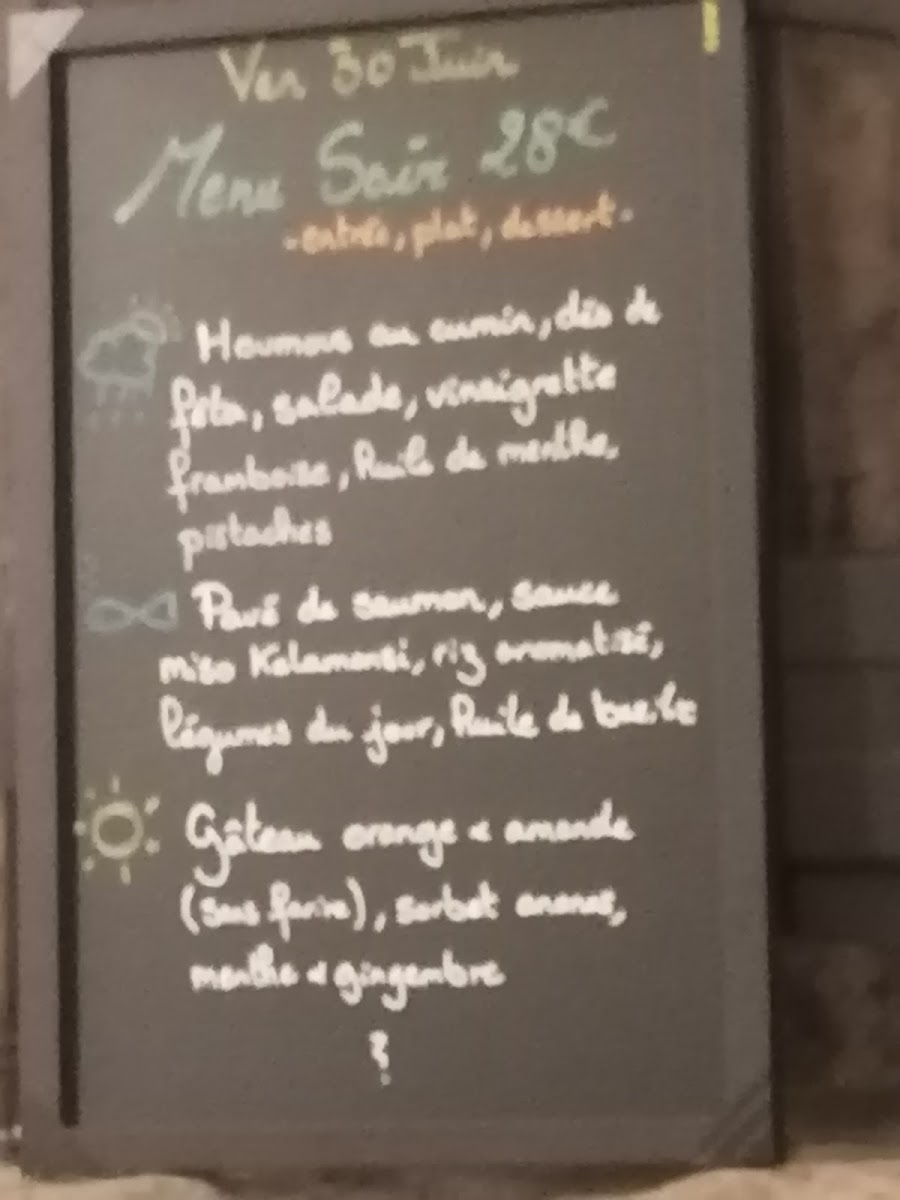 Ven 30 Juin
Menu Soir 28€
- entrée, plat, dessert -
Houmous au cumin, dés de
feta, salade, vinaigrette
framboise, huile de menthe,
pistaches
Pavé de saumon, sauce
miso Kalamansi, riz aromatisé,
légumes du jour, huile de basilic
Gâteau orange & amande
(sans farine), sorbet ananas,
menthe & gingembre